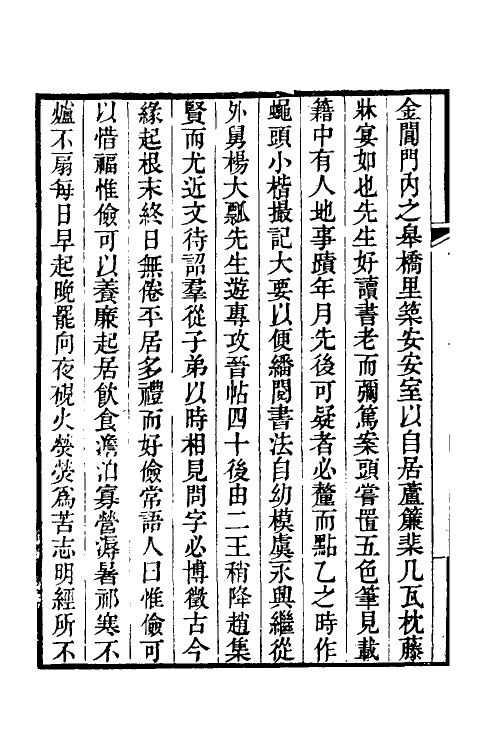 金閶門內之皋橋里築安安室以自居蘆簾棐几瓦枕藤
牀宴如也先生好讀書老而彌篤案頭嘗置五色筆見載
籍中有人地事蹟年月先後可疑者必釐而點乙之時作
蠅頭小楷撮記大要以便繙閱書法自幼模虞永興繼從
外舅楊大瓢先生遊專攻晉帖四十後由二王稍降趙集
賢而尤近文待詔羣從子弟以時相見問字必博徵古今
緣起根末終日無倦平居多禮而好儉常語人曰惟儉可
以惜福惟儉可以養廉起居飲食澹泊寡營溽暑祁寒不
爐不扇每日早起晚罷向夜硯火熒熒為苦志明經所不